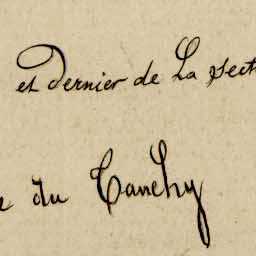 et Dernier de La sect
du Canchy